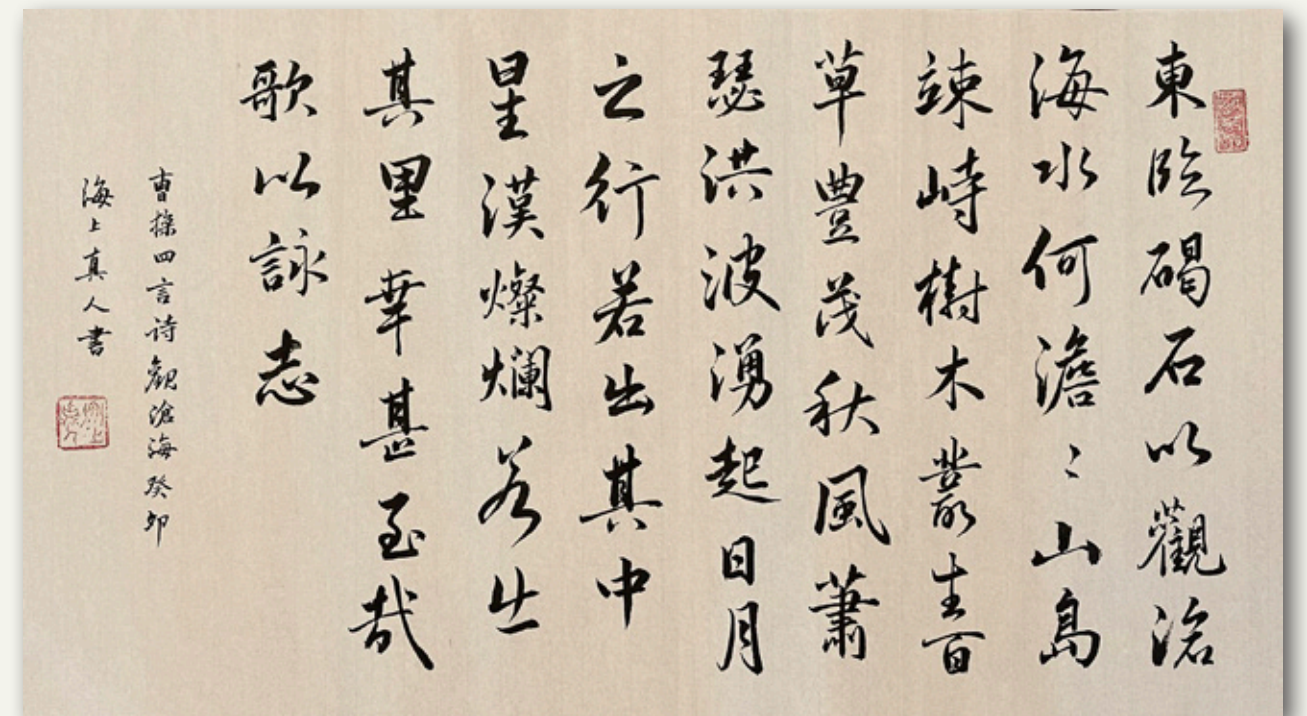 東臨碣石以觀滄
海水何澹〻山島
竦峙樹木叢生百
草豊茂秋風蕭
瑟洪波湧起日月
之行若出其中
星漢燦爛若出
其里幸甚至哉
歌以詠志
曹操四言诗觀滄海癸卯
海上真人書